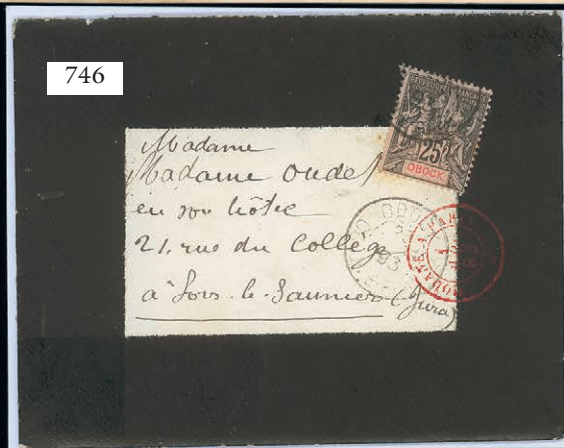 746
25
OBOCK
Madame
Madame Oudet
en son hôtel
21, rue du Collège
à Lons-le-Saunier (Jura)
OBOCK
93